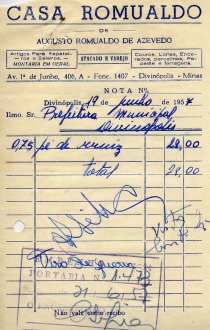 CASA ROMUALDO
DE
AUGUSTO ROMUALDO DE AZEVEDO
Artigos Para Sapateiros e Seleiros,
MONTARIA EM GERAL
ATACADO E VAREJO
Couros, Lonas, Encerados,
e ferragens.
Av. 1º de Junho, 406, A - Fone, 1407 - Divinópolis - Minas
NOTA Nº
Divinópolis, 19 de junho de 1957
Ilmo. Sr. Prefeitura Municipal
Divinópolis
0,75 pé de verniz 28,00
total 28,00
PORTARIA N.
Não vale como recibo